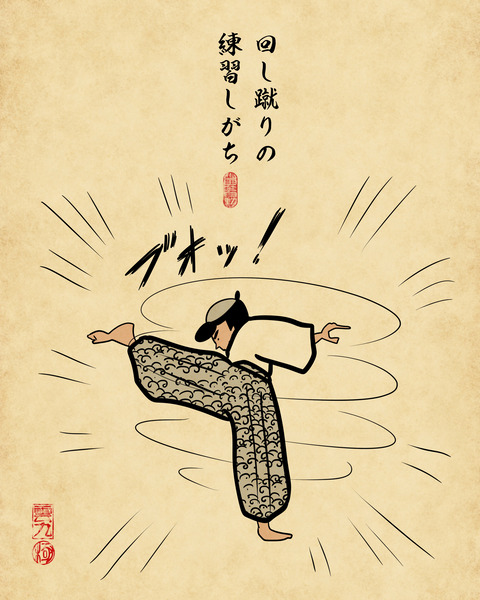 回し蹴りの
練習しがち
ブオッ!